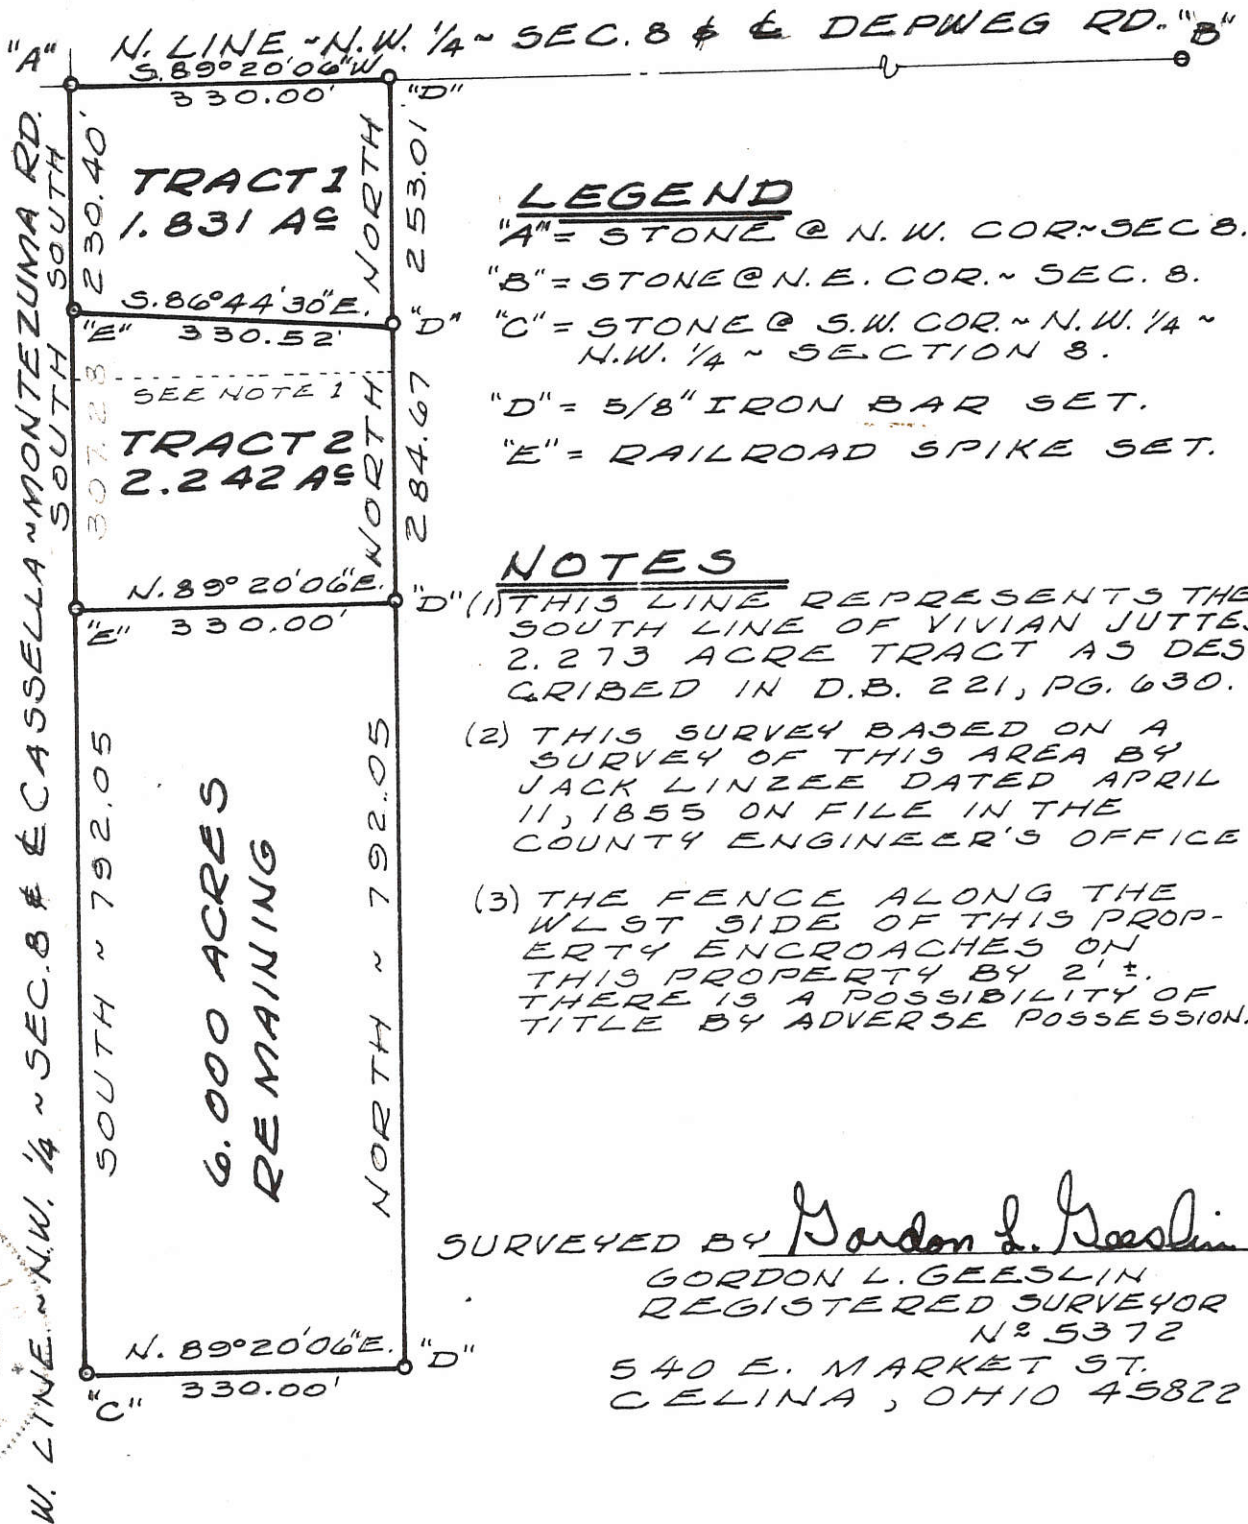 N. LINE ~ N.W. 1/4 ~ SEC. 8 & ℄ DEPWEG RD. "B"
"A"
S. 89° 20' 06" W
330.00'
"D"
W. LINE ~ N.W. 1/4 ~ SEC. 8 & ℄ CASSELLA ~ MONTEZUMA RD.
SOUTH
230.40'
TRACT 1
1.831 Ac
NORTH
253.01
S. 86° 44' 30" E.
"E" 330.52'
"D"
SOUTH
307.23
SEE NOTE 1
TRACT 2
2.242 Ac
NORTH
284.67
N. 89° 20' 06" E.
"E" 330.00'
"D"
SOUTH ~ 792.05
6.000 ACRES
REMAINING
NORTH ~ 792.05
N. 89° 20' 06" E.
"D"
"C" 330.00'
LEGEND
"A" = STONE @ N.W. COR. ~ SEC 8.
"B" = STONE @ N.E. COR. ~ SEC. 8.
"C" = STONE @ S.W. COR. ~ N.W. 1/4 ~
N.W. 1/4 ~ SECTION 8.
"D" = 5/8" IRON BAR SET.
"E" = RAILROAD SPIKE SET.
NOTES
(1) THIS LINE REPRESENTS THE
SOUTH LINE OF VIVIAN JUTTES
2.273 ACRE TRACT AS DES
CRIBED IN D.B. 221, PG. 630.
(2) THIS SURVEY BASED ON A
SURVEY OF THIS AREA BY
JACK LINZEE DATED APRIL
11, 1855 ON FILE IN THE
COUNTY ENGINEER'S OFFICE
(3) THE FENCE ALONG THE
WEST SIDE OF THIS PROP-
ERTY ENCROACHES ON
THIS PROPERTY BY 2' ±.
THERE IS A POSSIBILITY OF
TITLE BY ADVERSE POSSESSION.
SURVEYED BY Gordon L. Geeslin
GORDON L. GEESLIN
REGISTERED SURVEYOR
No 5372
540 E. MARKET ST.
CELINA, OHIO 45822